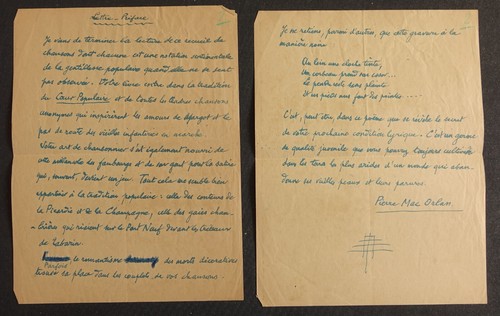 Lettre-Préface
Je viens de terminer la lecture de ce recueil de
chansons dont chacune est une notation sentimentale
de la gentillesse populaire quand elle ne se sent
pas observée. Votre livre entre dans la tradition
du Cœur Populaire et de toutes les tendres chansons
anonymes qui inspirèrent les amours de
pas de route des vieilles infanteries en marche
Votre art de chansonnier s'est également nourri de
votre des faubourgs et de son goût pour la satire
qui, souvent, devient un jeu. Tout cela me semble bien
appartenir à la tradition populaire : celle des conteurs de
la Picardie et de la Champagne, celle des gaies chan-
qui risèrent sur le Pont Neuf devant les tréteaux
de Tabarin
Parfois le romantisme des morts décoratives
trouve sa place dans les couplets de vos chansons.
Je ne retiens, parmi d'autres, que cette gravure à la
manière noire
Au loin une cloche tinte,
Un corbeau prend son essor...
sans plainte
C'est, peut être, dans ce poème que se révèle le secret
de votre prochaine condition lyrique - C'est un germe
de qualité, que vous pouvez toujours cultiver
dans les temps les plus arides d'un monde qui aban-
donne ses vieilles peaux et leurs parures.
Pierre Mac Orlan